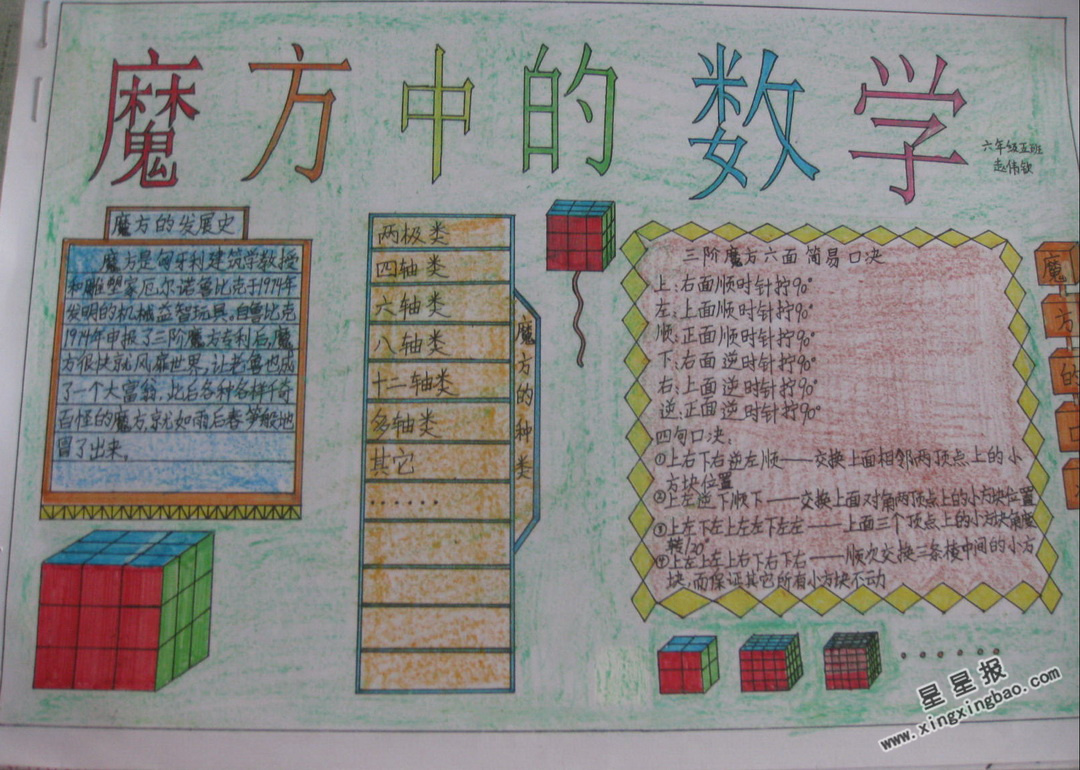 魔方中的数学
六年级五班
赵伟钦
魔方的发展史
魔方是匈牙利建筑学教授
和雕塑家厄尔诺鲁比克于1974年
发明的机械益智玩具。自鲁比克
1974年申报了三阶魔方专利后,魔
方很快就风靡世界,让老鲁也成
了一个大富翁,此后各种各样千奇
百怪的魔方,就如雨后春笋般地
冒了出来。
两极类
四轴类
六轴类
八轴类
十二轴类
多轴类
其它
……
魔方的种类
三阶魔方六面简易口决
上:右面顺时针拧90°
左:上面顺时针拧90°
顺:正面顺时针拧90°
下:右面逆时针拧90°
右:上面逆时针拧90°
逆:正面逆时针拧90°
四句口决:
①上右下右逆左顺——交换上面相邻两顶点上的小
方块位置
②上左逆下顺下——交换上面对角两顶点上的小方块位置
③上左下左上左左下左左——上面三个顶点上的小方块角度
转120°
④上左上左上右下右下右——顺次交换三条棱中间的小方
块,而保证其它所有小方块不动
魔
方
的
……
星星报
www.xingxingbao.com